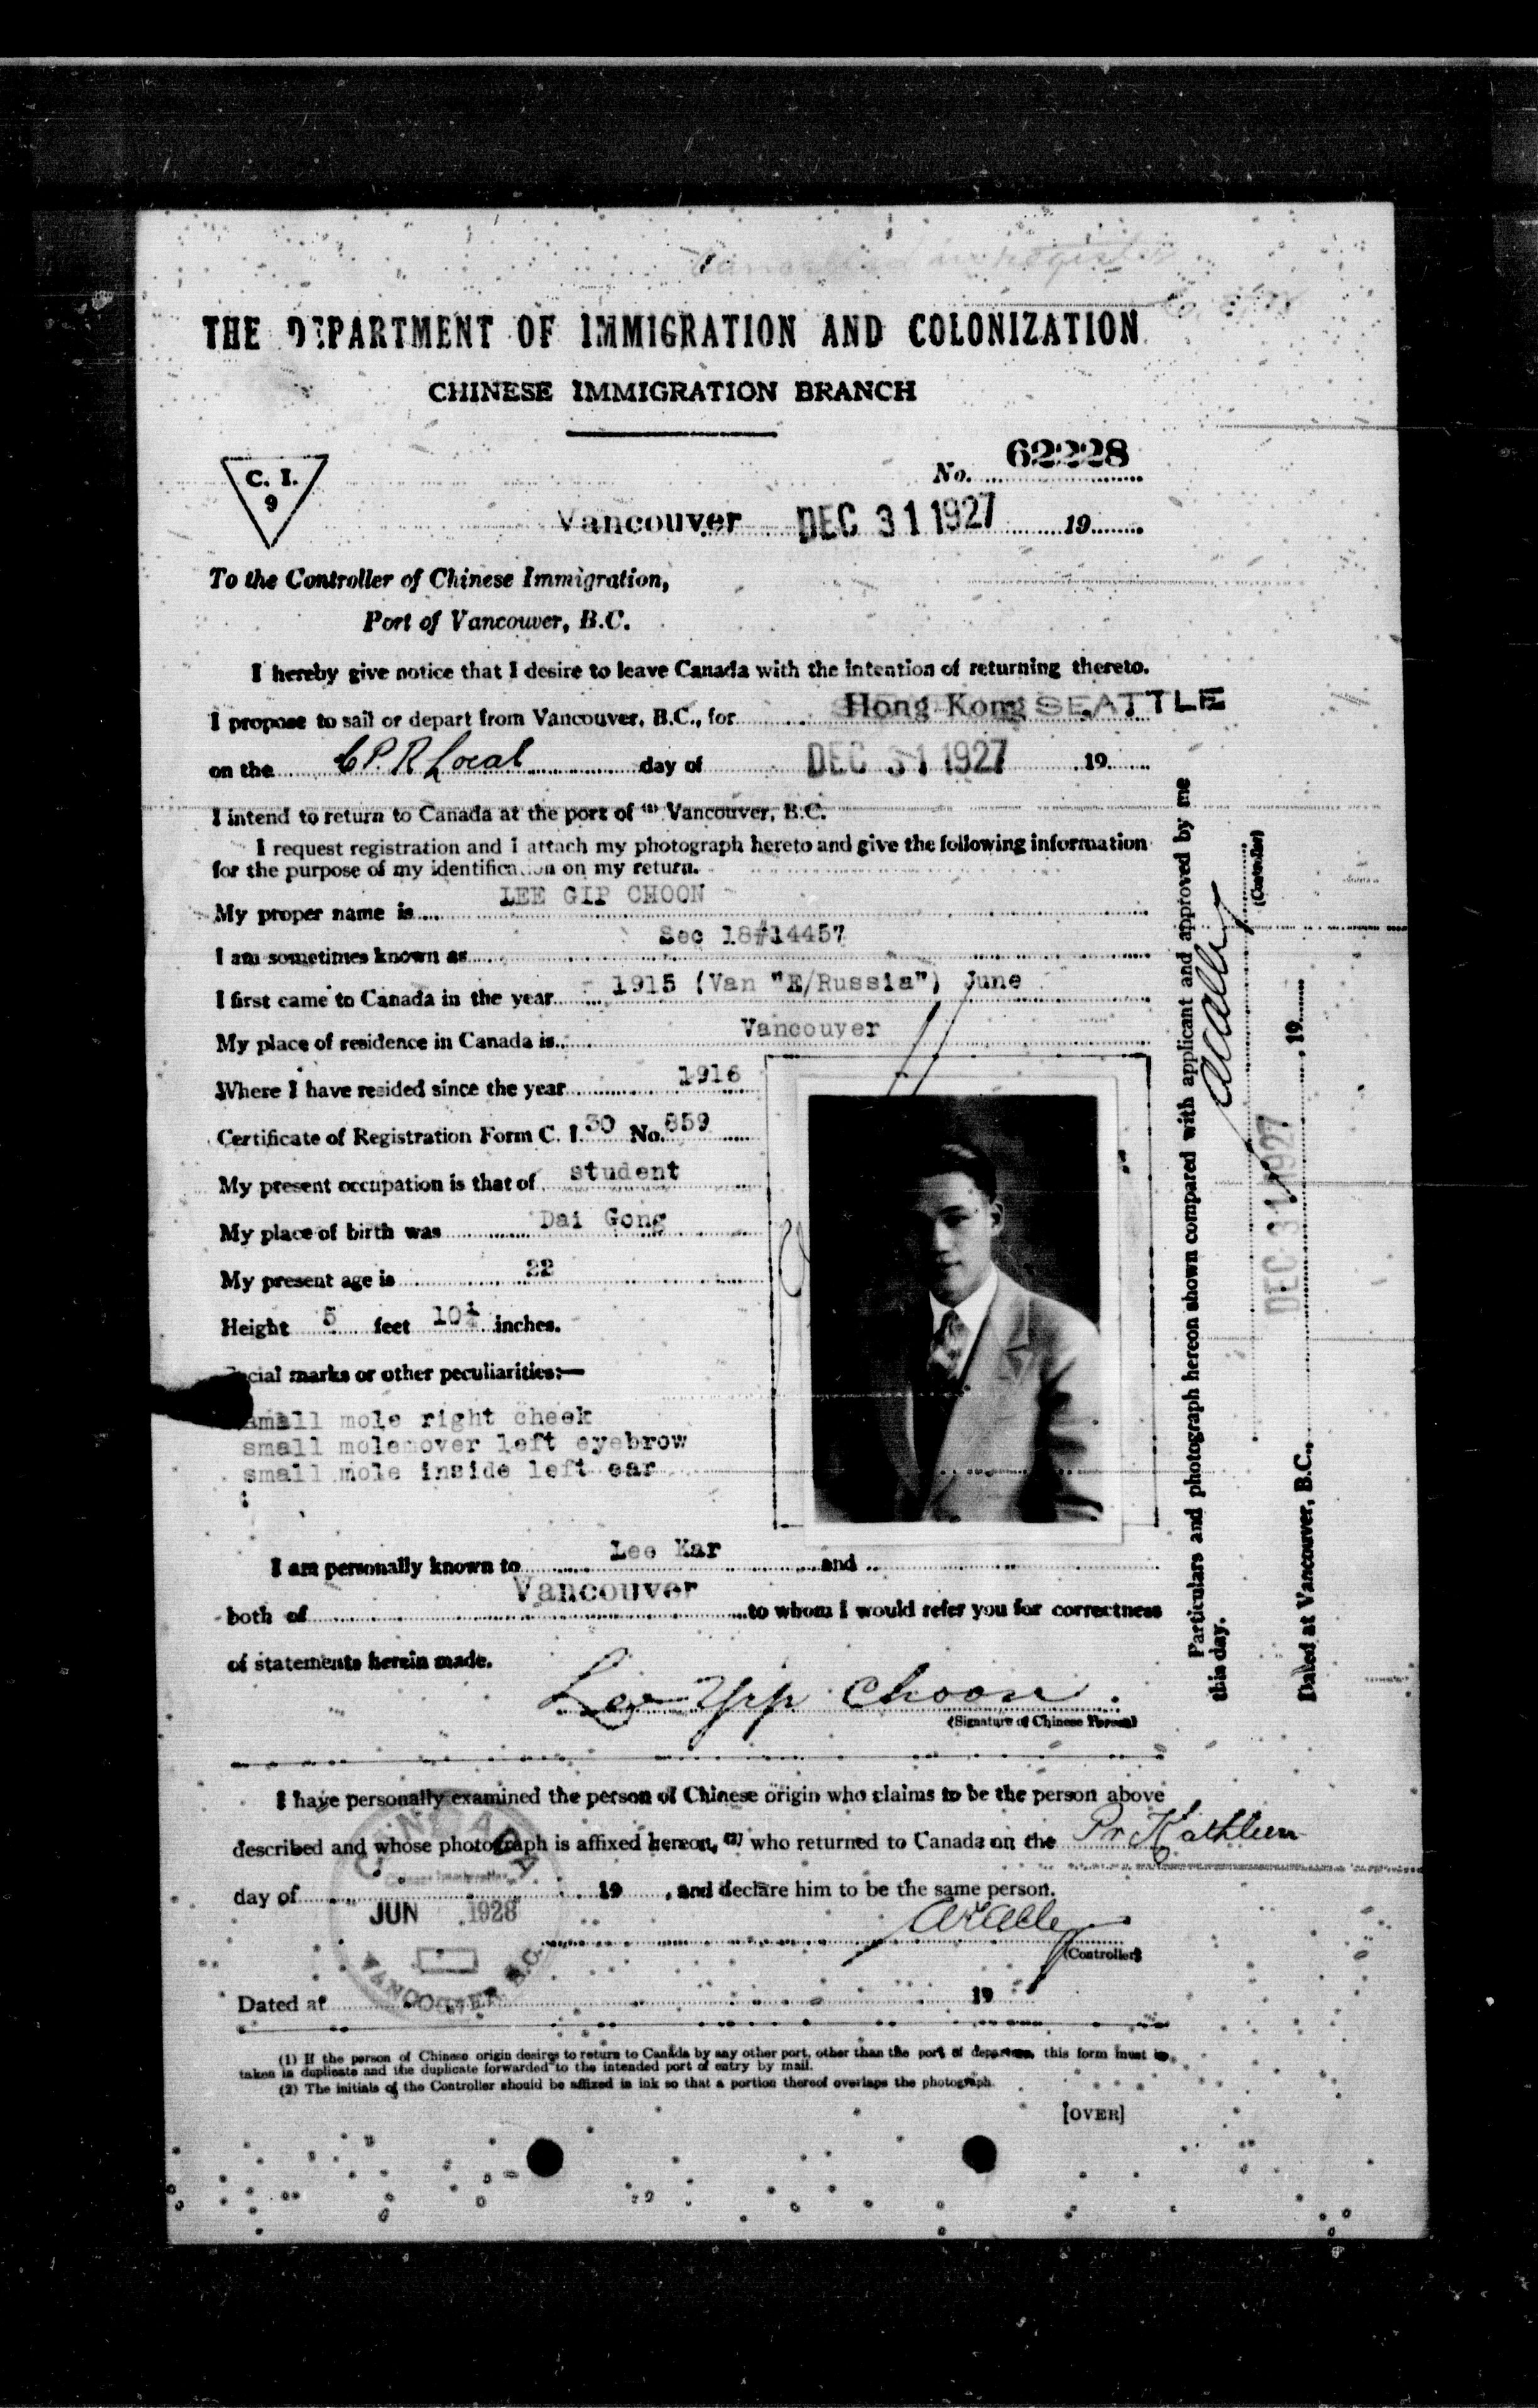 Cancelled in register
THE DEPARTMENT OF IMMIGRATION AND COLONIZATION
CHINESE IMMIGRATION BRANCH
C. I.
9
No. 62228
Vancouver DEC 31 1927 19
To the Controller of Chinese Immigration,
Port of Vancouver, B.C.
I hereby give notice that I desire to leave Canada with the intention of returning thereto.
I propose to sail or depart from Vancouver, B.C., for Hong Kong SEATTLE
on the C.P.R Local day of DEC 31 1927 19
I intend to return to Canada at the port of (1) Vancouver, B.C.
I request registration and I attach my photograph hereto and give the following information
for the purpose of my identification on my return.
My proper name is LEE GIP CHOON
Sec 18#14457
I am sometimes known as
I first came to Canada in the year 1915 (Van "E/Russia") June
My place of residence in Canada is Vancouver
Where I have resided since the year 1916
Certificate of Registration Form C. I. 30 No. 859
My present occupation is that of student
My place of birth was Dai Gong
My present age is 22
Height 5 feet 10¼ inches.
cial marks or other peculiarities:—
small mole right cheek
small mole over left eyebrow
small mole inside left ear
I am personally known to Lee Kar and
both of Vancouver to whom I would refer you for correctness
of statements herein made.
Lee Yip Choon.
(Signature of Chinese Person)
I have personally examined the person of Chinese origin who claims to be the person above
described and whose photograph is affixed hereon, (2) who returned to Canada on the Pr Kathleen
day of 19 , and declare him to be the same person.
JUN 1928
VANCOUVER B.C.
(Controller)
Dated at 19
(1) If the person of Chinese origin desires to return to Canada by any other port, other than the port of departure, this form must be
taken in duplicate and the duplicate forwarded to the intended port of entry by mail.
(2) The initials of the Controller should be affixed in ink so that a portion thereof overlaps the photograph.
[OVER]
Particulars and photograph hereon shown compared with applicant and approved by me
this day.
(Controller)
DEC 31 1927
Dated at Vancouver, B.C., 19